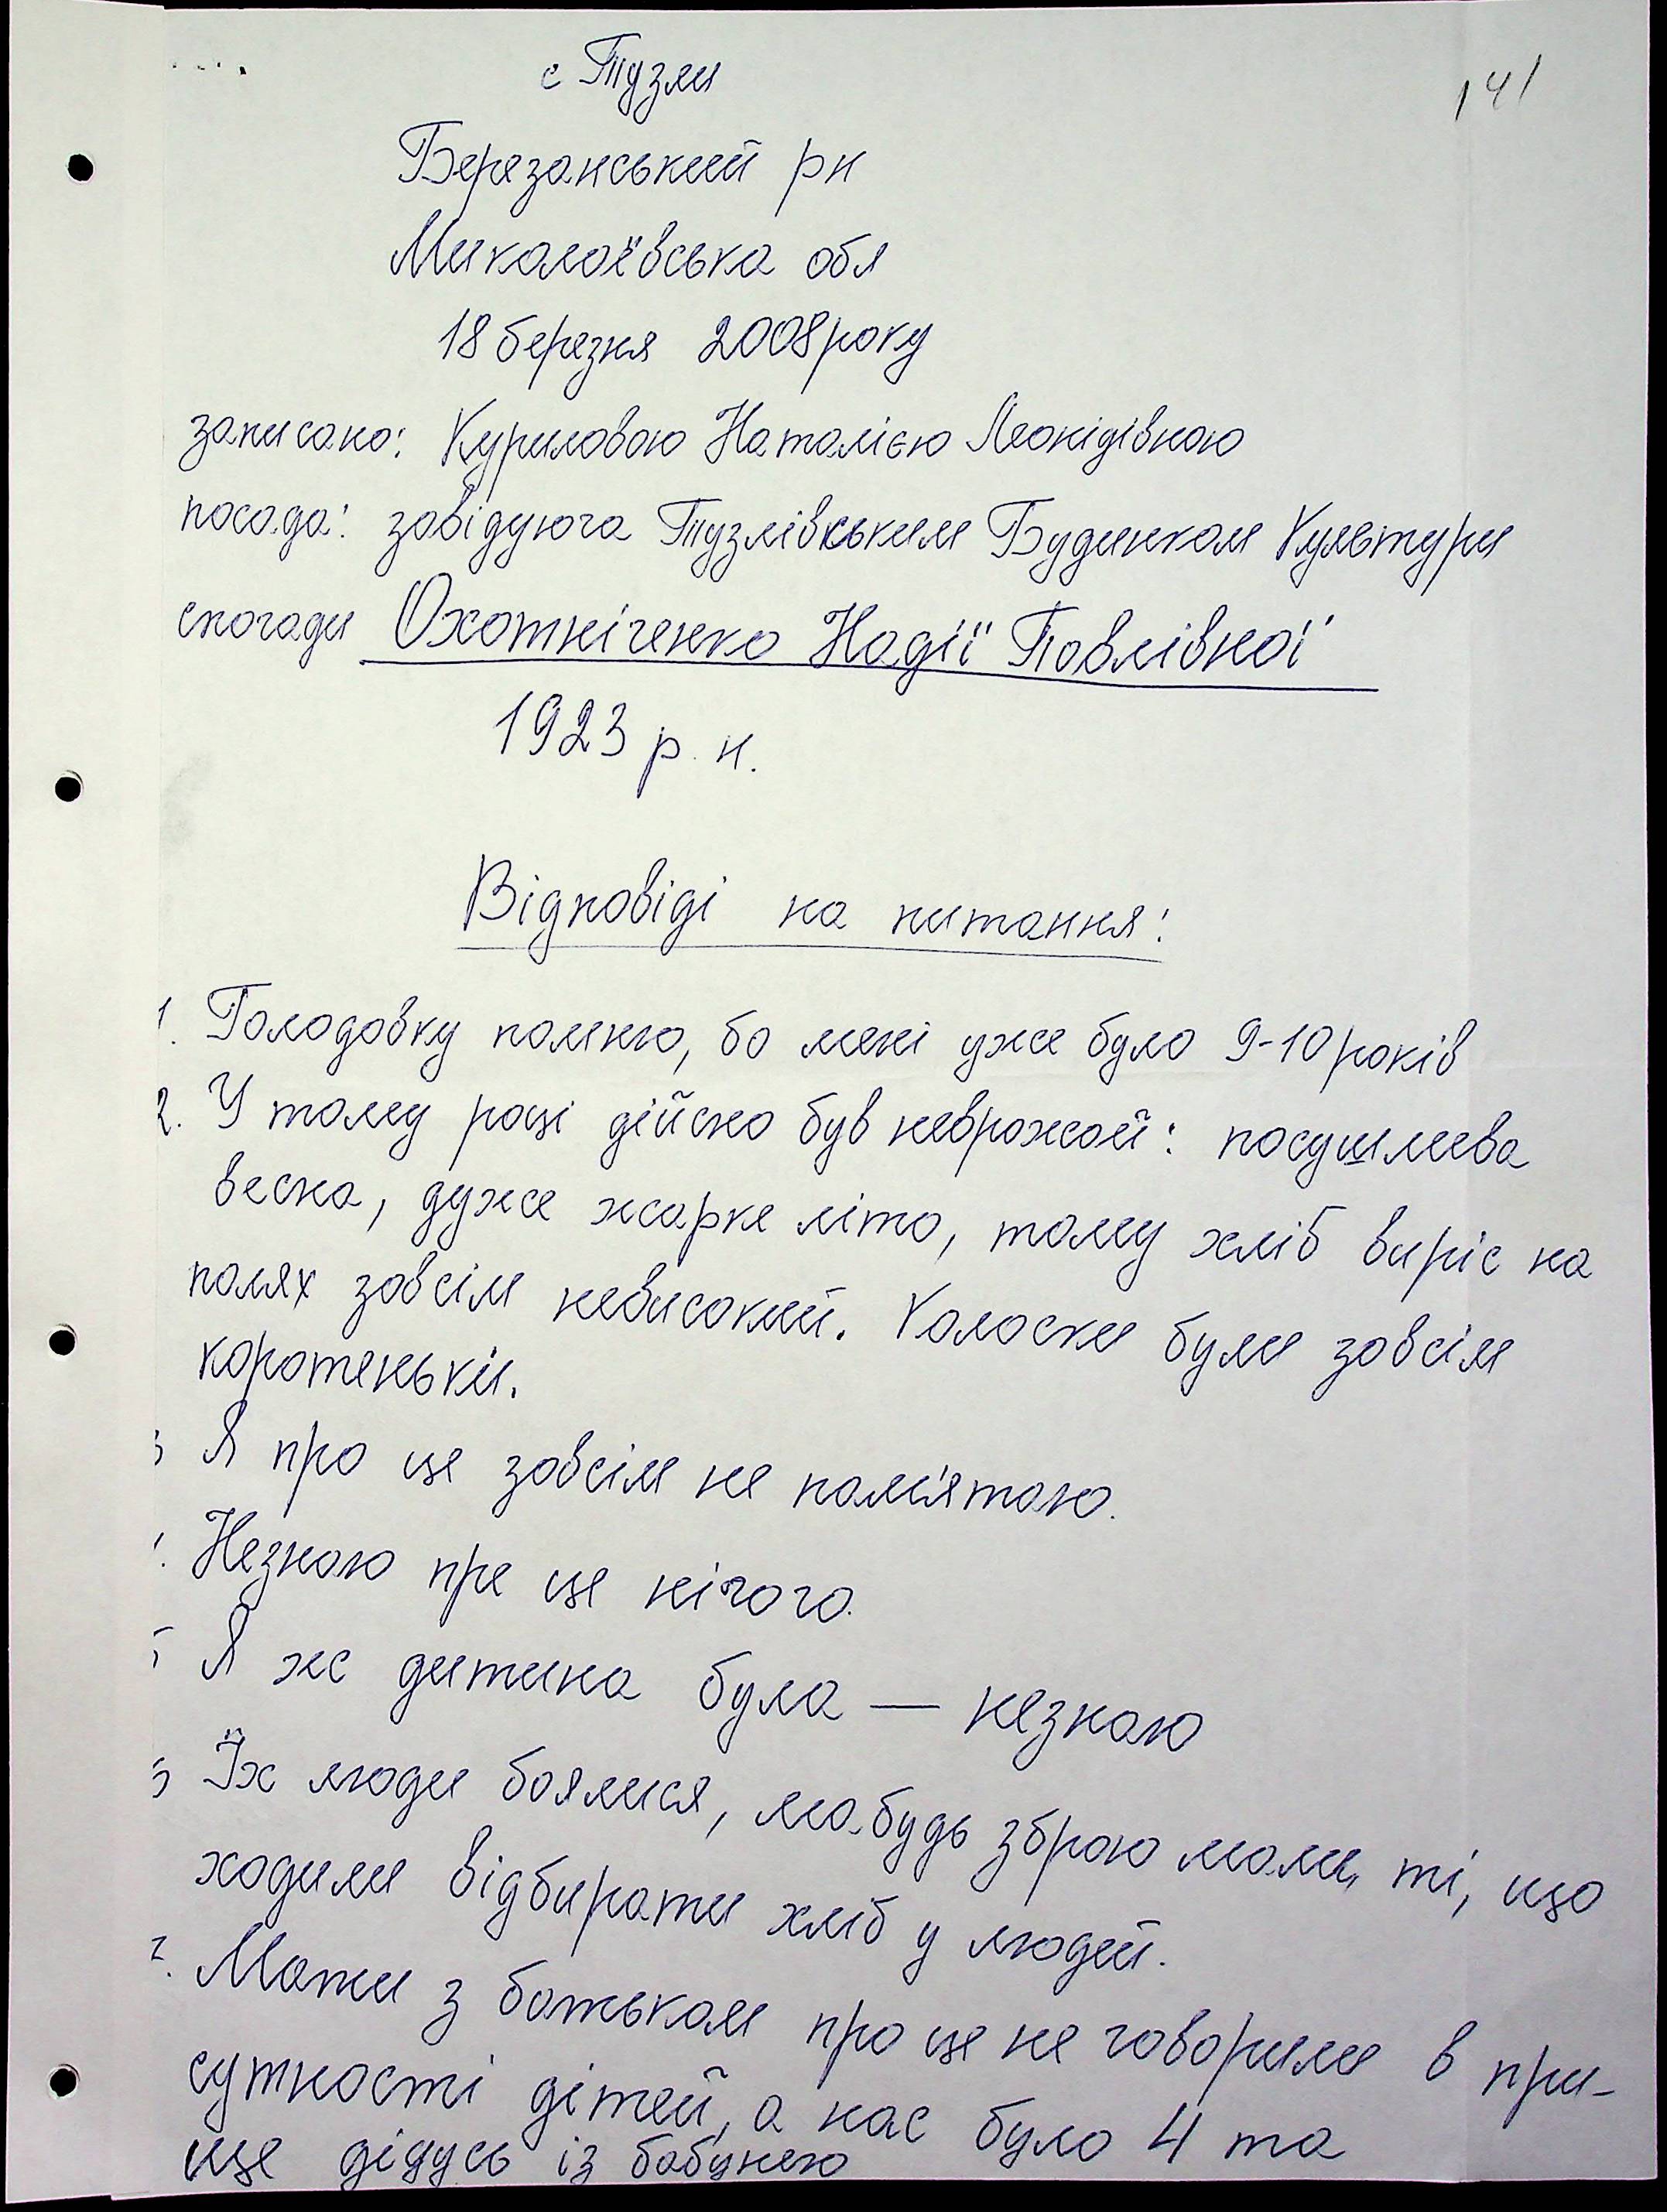 с Тузли
141
Березанський рн
Миколаївська обл
18 березня 2008 року
записано: Куриловою Наталією Леонідівною
посада: завідуюча Тузлівським Будинком Культури
спогади Охотніченко Надії Павлівної
1923 р. н.
Відповіді на питання:
1. Голодовку помню, бо мені уже було 9-10 років
2. У тому році дійсно був неврожай: посушлива
весна, дуже жарке літо, тому хліб виріс на
полях зовсім невисокий. Колоски були зовсім
коротенькі.
3 Я про це зовсім не пам'ятаю.
. Незнаю пре це нічого.
5 Я жс дитина була — незнаю
Їх люди боялися, ма.будь зброю мали, ті, що
ходили відбирати хліб у людей.
7. Мати з батьком про це не говорили в при-
сутності дітей, а нас було 4 та
ще дідусь із бабунею